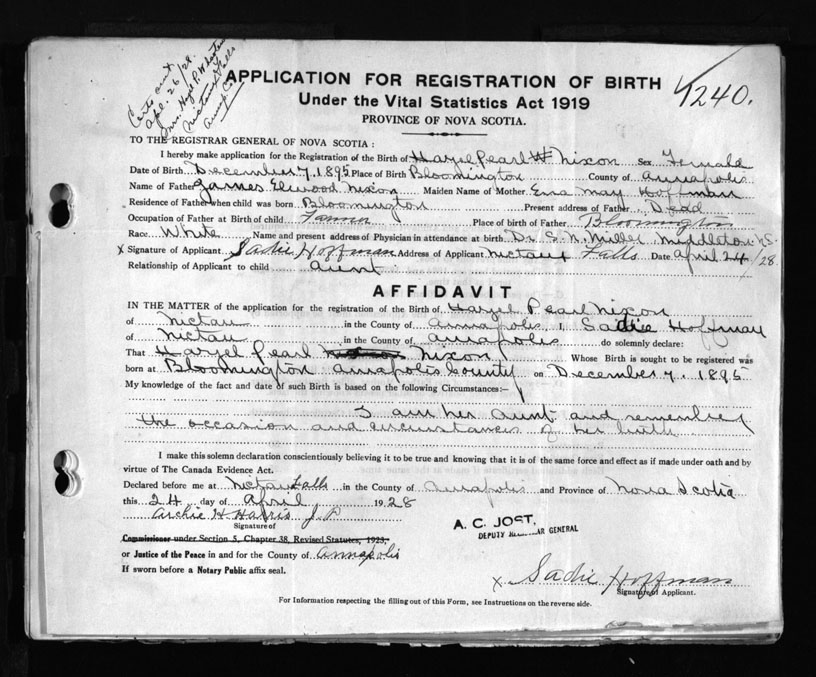 Certs sent
Apl. 26/28
Mrs. Hazel P. Wheaton
Nictaux Falls
Annap. Co.
APPLICATION FOR REGISTRATION OF BIRTH
Under the Vital Statistics Act 1919
PROVINCE OF NOVA SCOTIA.
1240.
TO THE REGISTRAR GENERAL OF NOVA SCOTIA :
I hereby make application for the Registration of the Birth of Hazel Pearl Nixon Sex Female
Date of Birth December 7, 1895 Place of Birth Bloomington County of Annapolis
Name of Father James Elwood Nixon Maiden Name of Mother Ena May Hoffman
Residence of Father when child was born Bloomington Present address of Father Dead
Occupation of Father at Birth of child Farmer Place of birth of Father Bloomington
Race White Name and present address of Physician in attendance at birth Dr. S. N. Miller, Middleton N.S.
x Signature of Applicant Sadie Hoffman Address of Applicant Nictaux Falls Date April 24/28
Relationship of Applicant to child aunt
AFFIDAVIT
IN THE MATTER of the application for the registration of the Birth of Hazel Pearl Nixon
of Nictau in the County of Annapolis, I Sadie Hoffman
of Nictau in the County of Annapolis do solemnly declare:
That Hazel Pearl Nixon Whose Birth is sought to be registered was
born at Bloomington Annapolis County on December 7, 1895
My knowledge of the fact and date of such Birth is based on the following Circumstances:—
I am her Aunt and remember
the occasion and circumstances of her birth
I make this solemn declaration conscientiously believing it to be true and knowing that it is of the same force and effect as if made under oath and by
virtue of The Canada Evidence Act.
Declared before me at Nictau Falls in the County of Annapolis and Province of Nova Scotia
this 24 day of April 1928
Archie H Harris J.P.
Signature of
Commissioner under Section 5, Chapter 38, Revised Statutes, 1923,
or Justice of the Peace in and for the County of Annapolis
If sworn before a Notary Public affix seal.
A. C. JOST,
DEPUTY REGISTRAR GENERAL
x Sadie Hoffman
Signature of Applicant.
For Information respecting the filling out of this Form, see Instructions on the reverse side.